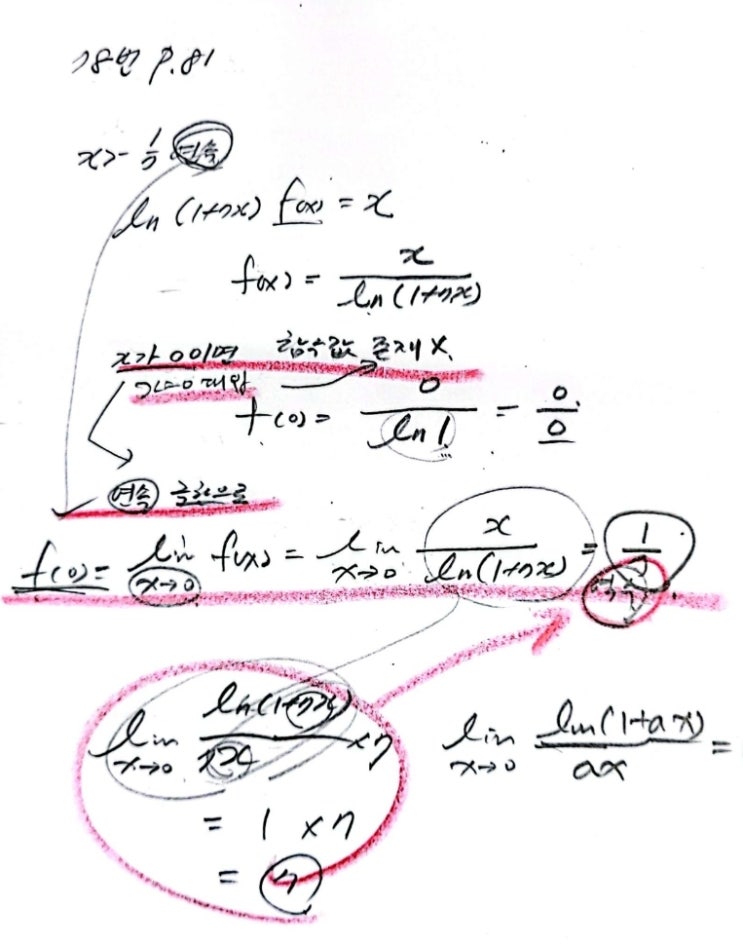 78번 P.81
x>-1/7 연속
ln(1+7x) f(x) = x
f(x) = x/ln(1+7x)
x가 0이면 함수값 존재 X.
x=0 대입
f(0) = 0/ln1 = 0/0
연속 극한으로
f(0) = lim x→0 f(x) = lim x→0 x/ln(1+7x) = 1/7
역수
lim x→0 ln(1+7x)/7x ×7
= 1 × 7
= 7
lim x→0 ln(1+ax)/ax =